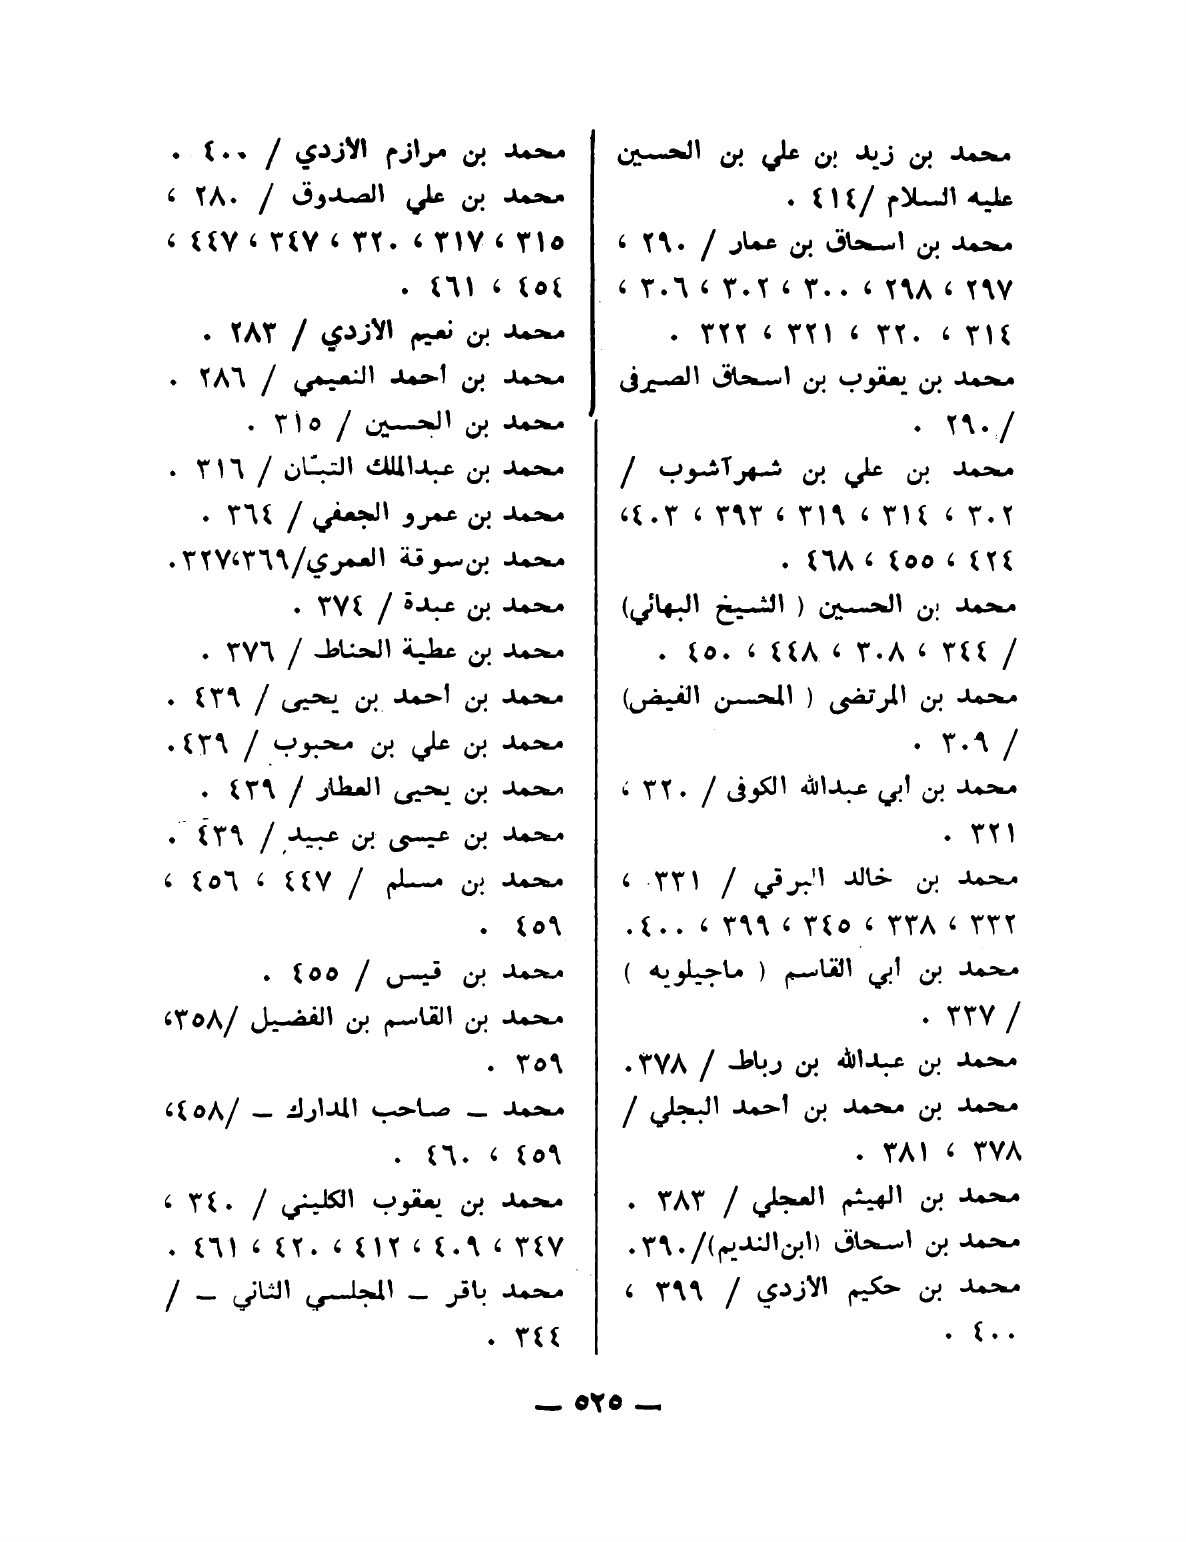 محمد بن زيد بن علي بن الحسين
عليه السلام /٤١٤ .
محمد بن اسحاق بن عمار / ٢٩٠ ،
٢٩٧ ، ٢٩٨ ، ٣٠٠ ، ٣٠٢ ، ٣٠٦ ،
٣١٤ ، ٣٢٠ ، ٣٢١ ، ٣٢٢ .
محمد بن يعقوب بن اسحاق الصيرفى
/٢٩٠ .
محمد بن علي بن شهرآشوب /
٣٠٢ ، ٣١٤ ، ٣١٩ ، ٣٩٣ ، ٤٠٣،
٤٢٤ ، ٤٥٥ ، ٤٦٨ .
محمد بن الحسين ( الشيخ البهائي)
/ ٣٤٤ ، ٣٠٨ ، ٤٤٨ ، ٤٥٠ .
محمد بن المرتضى ( المحسن الفيض)
/ ٣٠٩ .
محمد بن أبي عبدالله الكوفى / ٣٢٠ ،
٣٢١ .
محمد بن خالد البرقي / ٣٣١ ،
٣٣٢ ، ٣٣٨ ، ٣٤٥ ، ٣٩٩ ، ٤٠٠.
محمد بن أبي القاسم ( ماجيلويه )
/ ٣٣٧ .
محمد بن عبدالله بن رباط / ٣٧٨.
محمد بن محمد بن أحمد البجلي /
٣٧٨ ، ٣٨١ .
محمد بن الهيثم العجلي / ٣٨٣ .
محمد بن اسحاق (ابن النديم)/٣٩٠.
محمد بن حكيم الازدي / ٣٩٩ ،
٤٠٠ .
محمد بن مرازم الازدي / ٤٠٠ .
محمد بن علي الصدوق / ٢٨٠ ،
٣١٥ ، ٣١٧ ، ٣٢٠ ، ٣٤٧ ، ٤٤٧ ،
٤٥٤ ، ٤٦١ .
محمد بن نعيم الازدي / ٢٨٣ .
محمد بن أحمد النعيمي / ٢٨٦ .
محمد بن الحسين / ٣١٥ .
محمد بن عبدالملك التبّان / ٣١٦ .
محمد بن عمرو الجعفي / ٣٦٤ .
محمد بن سوقة العمري/٣٦٩،٣٢٧.
محمد بن عبدة / ٣٧٤ .
محمد بن عطية الحناط / ٣٧٦ .
محمد بن أحمد بن يحيى / ٤٣٩ .
محمد بن علي بن محبوب / ٤٣٩.
محمد بن يحيى العطار / ٤٣٩ .
محمد بن عيسى بن عبيد / ٤٣٩ .
محمد بن مسلم / ٤٤٧ ، ٤٥٦ ،
٤٥٩ .
محمد بن قيس / ٤٥٥ .
محمد بن القاسم بن الفضيل /٣٥٨،
٣٥٩ .
محمد – صاحب المدارك – /٤٥٨،
٤٥٩ ، ٤٦٠ .
محمد بن يعقوب الكليني / ٣٤٠ ،
٣٤٧ ، ٤٠٩ ، ٤١٢ ، ٤٢٠ ، ٤٦١ .
محمد باقر – المجلسي الثاني – /
٣٤٤ .
— ٥٢٥ —